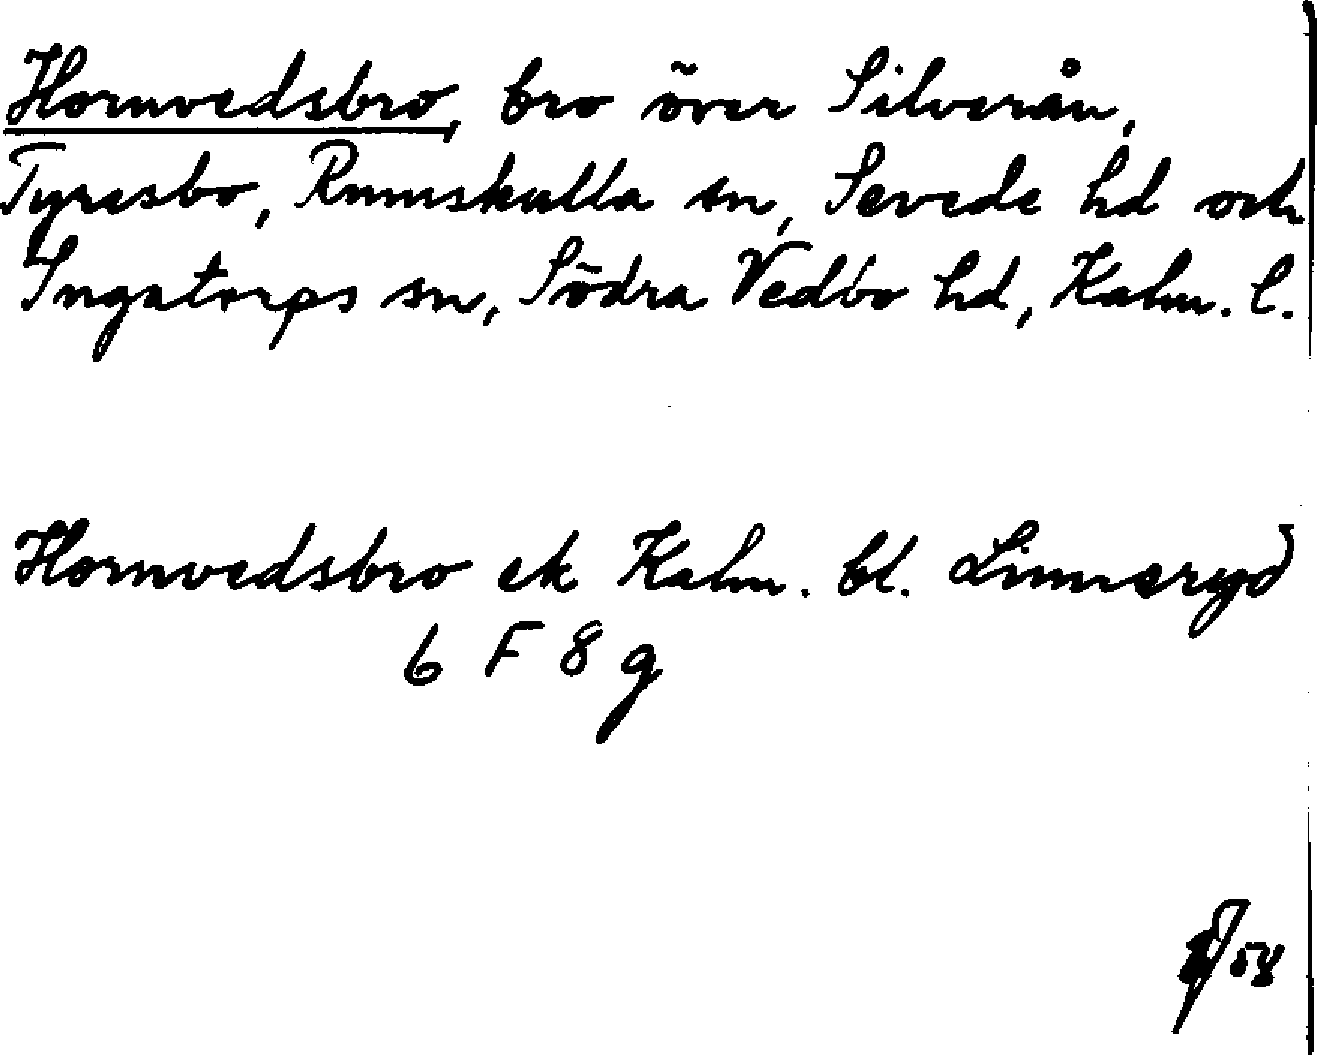 Hornvedsbro, bro över Silverån,
Tyresbo, Rumskulla sn, Sevede hd och
Ingatorps sn, Södra Vedbo hd, Kalm. l.
Hornvedsbro ek Kalm. bl. Linneryd
6 F 8 g
58